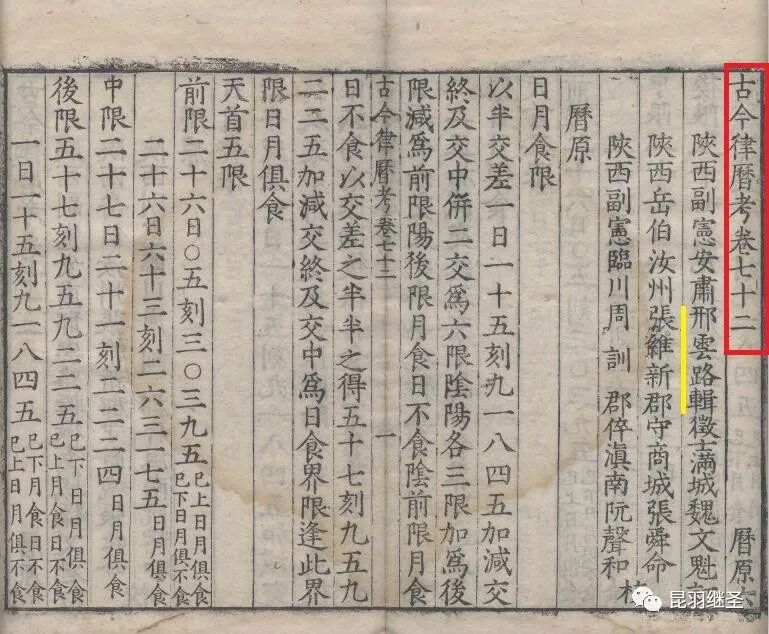 古今律曆考卷七十二 曆原
陝西副憲安肅邢雲路輯徵士滿城魏文魁
陝西岳伯汝州張維新郡守商城張舜命
陝西副憲臨川周 訓 郡倅滇南阮聲和 校
曆原
日月食限
以半交差一日一十五刻九一八四五加減交
終及交中併二交爲六限陰陽各三限加爲後
限減爲前限陽後限月食日不食陰前限月食
古今律曆考卷七十二 一
日不食以交差之半半之得五十七刻九五九
二二五加減交終及交中爲日食界限逢此界
限日月俱食
天首五限
前限二十六日〇五刻三〇三九五 已上日月俱食 已下日月俱不食
二十六日六十三刻二六三一七五 日月俱食
中限二十七日二十一刻二二二四 日月俱食
後限五十七刻九五九二二五 已下日月俱食 已上月食日不食
一日一十五刻九一八四五 已下月食日不食 已上日月俱不食
昆羽继圣